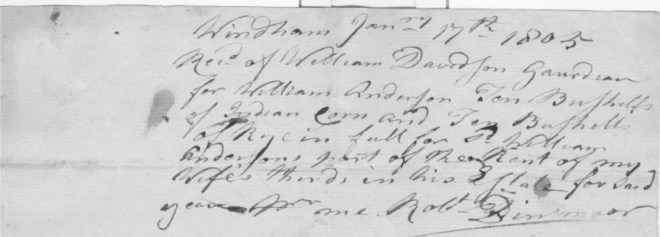 Windham Janry 17th 1805
Recd of William Davidson Gaurdean
for William Anderson Ten Bushells
of Indian Corn and Ten Bushells
of Rye in full for sd William
Andersons part of the Rent of my
Wifes thirds in his Estate for said
year Pr me Robt Dinsmoor